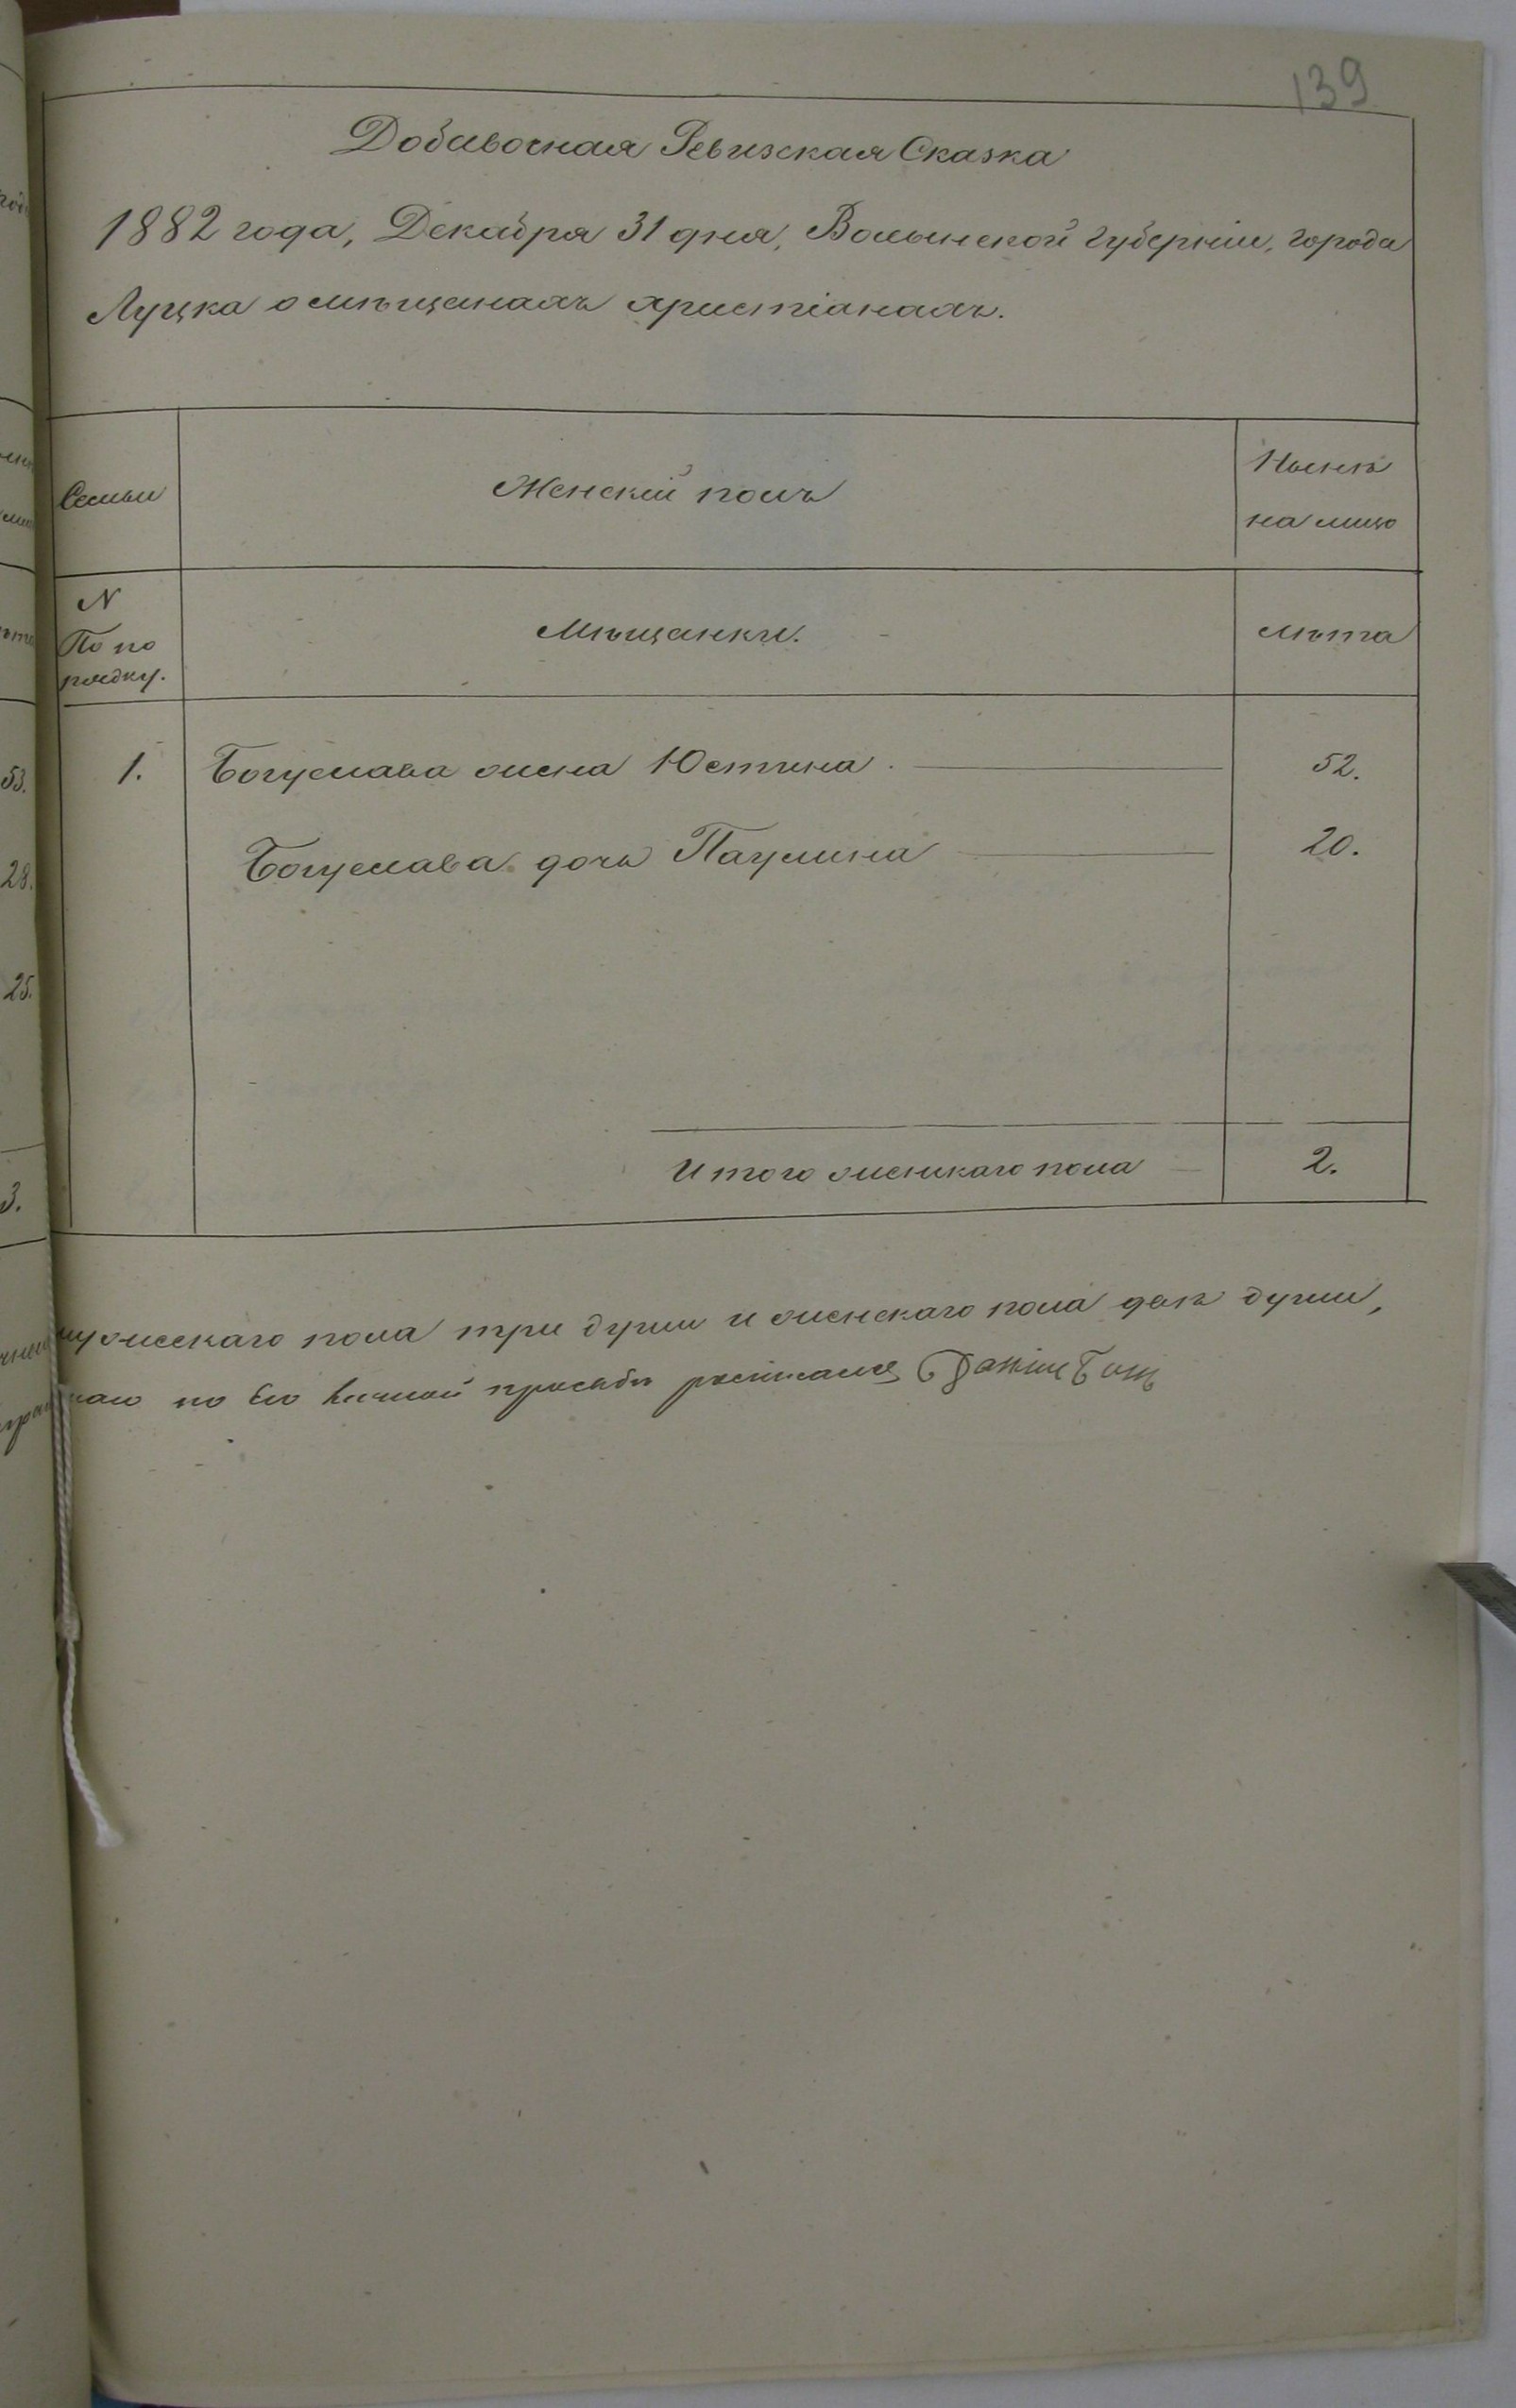 139
Добавочная Ревизская Сказка
1882 года, Декабря 31 дня, Волынской губерніи, города
Луцка о мѣщанахъ христіанахъ.
Семьи
Женскій полъ
Нынѣ
на лицо
N
По по
рядку.
Мѣщанки.
лѣта
1. Богуслава жена Юстина 52.
Богуслава дочь Паулина 20.
Итого женскаго пола 2.
мужескаго пола три души и женскаго пола двѣ души,
по его личной просьбѣ росписался
53.
28.
25.
3.